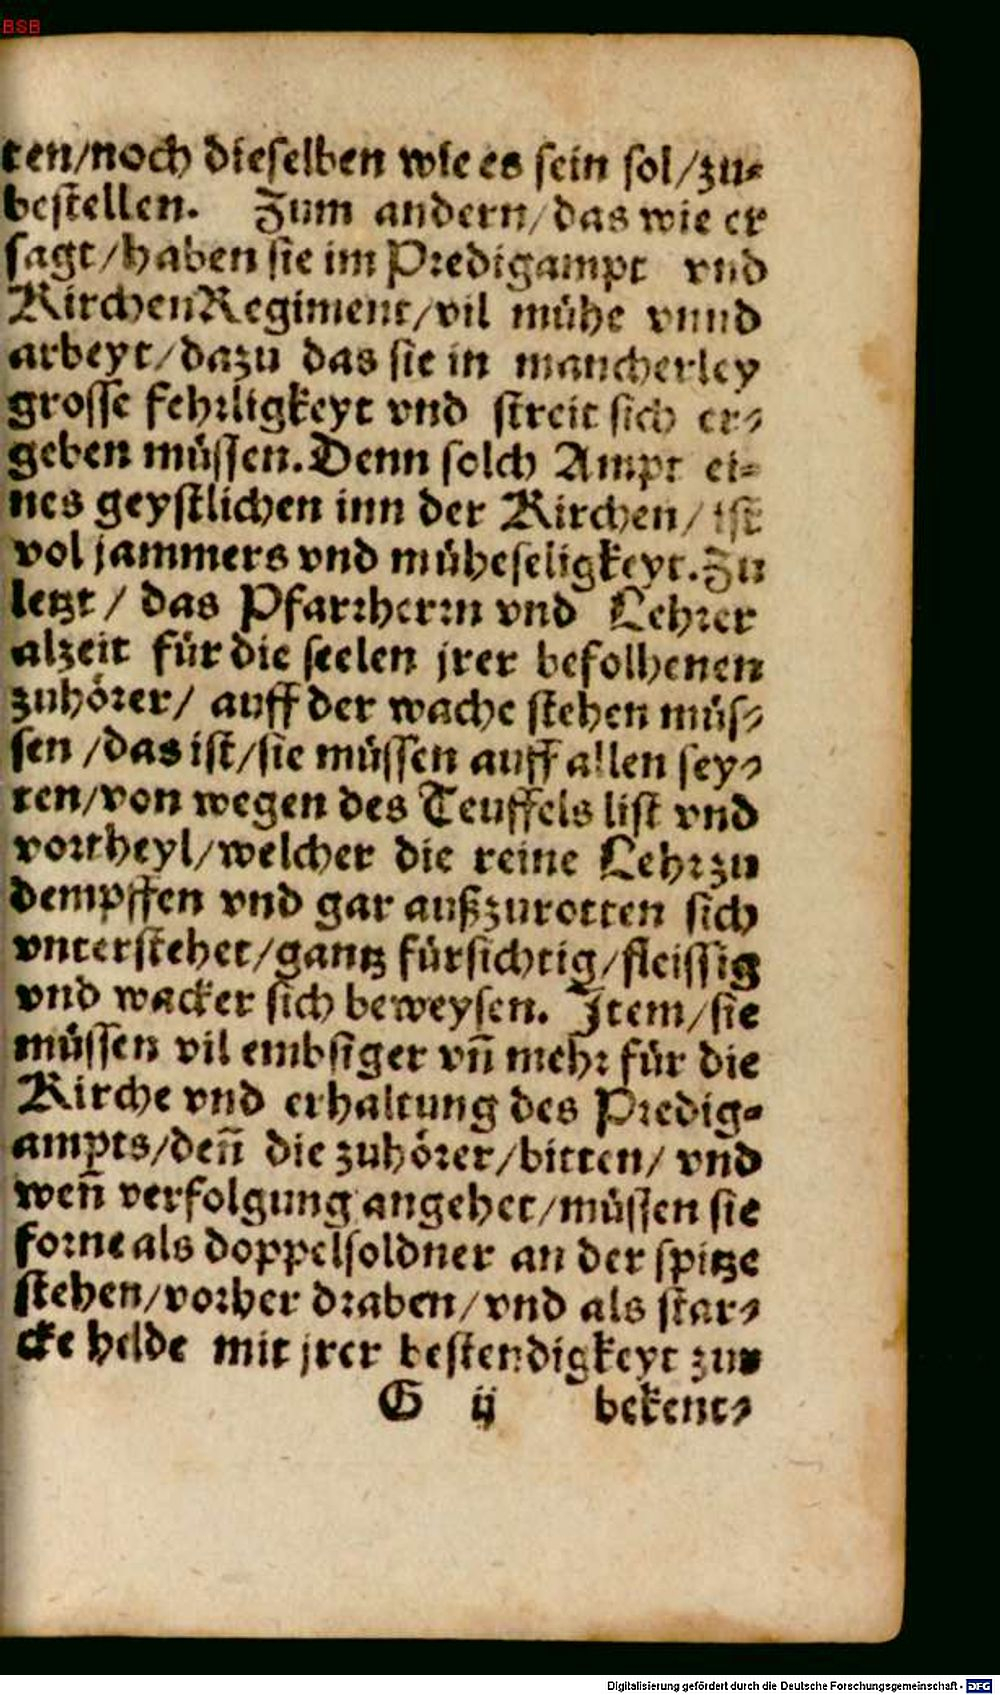 BSB
ten/noch dieselben wie es sein sol/zu-
bestellen. Zum andern/das wie er
sagt/haben sie im Predigampt vnd
KirchenRegiment/vil mühe vnnd
arbeyt/dazu das sie in mancherley
grosse fehrligkeyt vnd streit sich er-
geben müssen. Denn solch Ampt ei-
nes geystlichen inn der Kirchen/ ist
vol jammers vnd müheseligkeyt. Zu
letzt / das Pfarrherrn vnd Lehrer
alzeit für die seelen jrer befolhenen
zuhörer/ auff der wache stehen müs-
sen /das ist/sie müssen auff allen sey-
ten/von wegen des Teuffels list vnd
vortheyl/welcher die reine Lehr zu
dempffen vnd gar außzurotten sich
vnterstehet/gantz fürsichtig/fleissig
vnd wacker sich beweysen. Item/sie
müssen vil embsiger vñ mehr für die
Kirche vnd erhaltung des Predig-
ampts/deñ die zuhörer/bitten/ vnd
weñ verfolgung angehet/müssen sie
forne als doppelsoldner an der spitze
stehen/vorher draben/vnd als star-
cke helde mit jrer bestendigkeyt zur
G ij bekent-
Digitalisierung gefördert durch die Deutsche Forschungsgemeinschaft - DFG